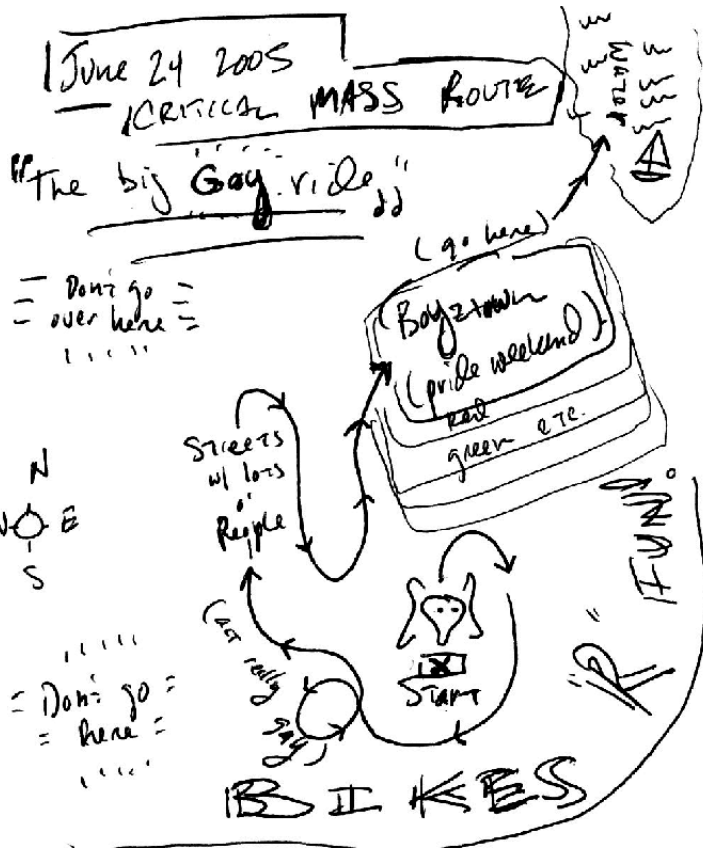 June 24 2005
CRITICAL MASS ROUTE
"The big Gay ride"
Water
(go here)
Don't go
over here
(Boyztown
(pride weekend)
red
green etc.
Streets
w/ lots
o'
People
N
W E
S
(act really
gay)
Start
Don't go
here
BIKES
"R"
FUN.